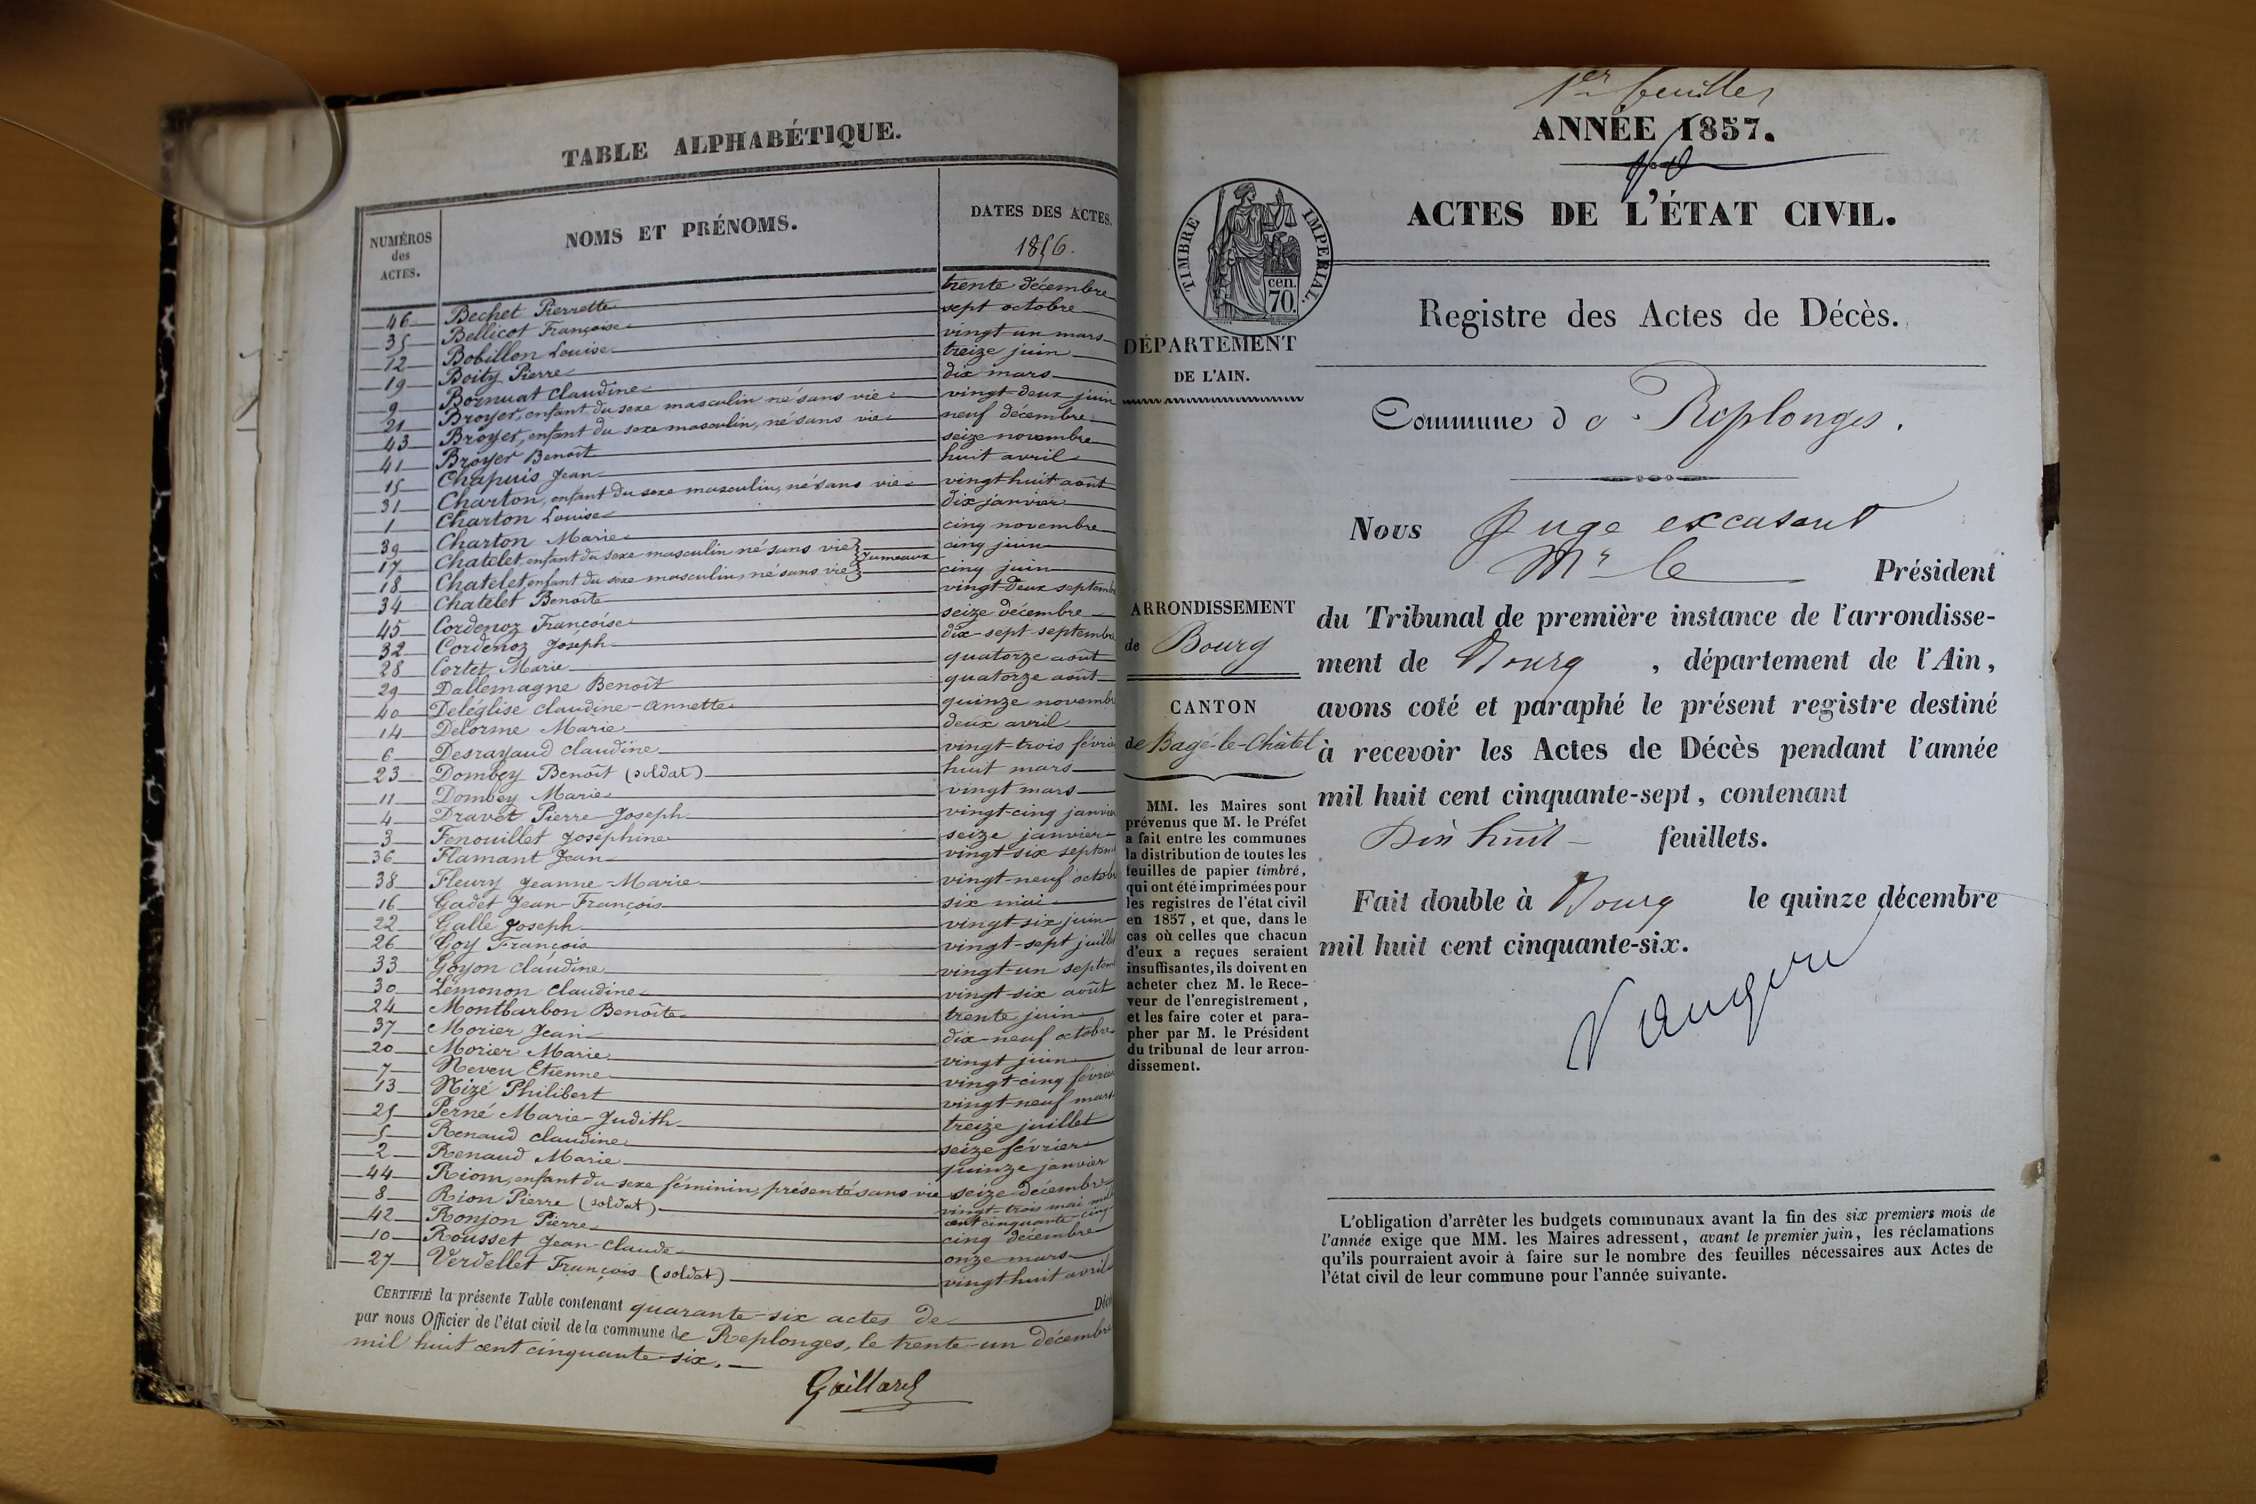 TABLE ALPHABÉTIQUE.
NUMÉROS des ACTES. NOMS ET PRÉNOMS. DATES DES ACTES.
1856.
46 Bechet Pierrette trente décembre
35 Bellicot Françoise sept octobre
12 Bobillon Louise vingt-un mars
19 Boity Pierre treize juin
9 Bornuat Claudine dix mars
21 Broyer, enfant du sexe masculin né sans vie vingt-deux juin
43 Broyer, enfant du sexe masculin, né sans vie neuf décembre
41 Broyer Benoît seize novembre
15 Chapuis Jean huit avril
31 Charton, enfant du sexe masculin, né sans vie vingt huit août
1 Charton Louise dix janvier
39 Charton Marie cinq novembre
17 Chatelet enfant du sexe masculin né sans vie } Jumeaux cinq juin
18 Chatelet enfant du sexe masculin, né sans vie } cinq juin
34 Chatelet Benoîte vingt-deux septembre
45 Cordenoz Françoise seize décembre
32 Cordenoz Joseph dix-sept septembre
28 Cortet Marie quatorze août
29 Dallemagne Benoît quatorze août
40 Deléglise Claudine-Annette quinze novembr
14 Delorme Marie deux avril
6 Desrayaud Claudine vingt-trois févrie
23 Dombey Benoît (soldat) huit mars
11 Dombey Marie vingt mars
4 Dravet Pierre-Joseph vingt-cinq janvier
3 Fenouillet Joséphine seize janvier
36 Flamant Jean vingt-six septem
38 Fleury Jeanne-Marie vingt-neuf octob
16 Gadet Jean-François six mai
22 Galle Joseph vingt-six juin
26 Goy François vingt-sept juill
33 Goyon Claudine vingt-un septem
30 Lémonon Claudine vingt-six août
24 Montbarbon Benoîte trente juin
37 Morier Jean dix-neuf octobre
20 Morier Marie vingt juin
7 Neveu Etienne vingt-cinq février
13 Nizé Philibert vingt-neuf mars
25 Perné Marie-Judith treize juillet
5 Renaud Claudine seize février
2 Renaud Marie quinze janvier
44 Riom, enfant du sexe féminin, présenté sans vie seize décembre
8 Rion Pierre (soldat) vingt-trois mai mil
cent cinquante-cinq
42 Ronjon Pierre cinq décembre
10 Rousset Jean-Claude onze mars
27 Verdellet François (soldat) vingt huit avril
CERTIFIÉ la présente Table contenant quarante-six actes de Déc
par nous Officier de l'état civil de la commune de Replonges, le trente-un décembre
mil huit cent cinquante-six.
Gaillard
1er feuillet
ANNÉE 1857.
ACTES DE L'ÉTAT CIVIL.
TIMBRE IMPERIAL.
cen.
70.
DÉPARTEMENT
DE L'AIN.
ARRONDISSEMENT
de Bourg
CANTON
de Bagé-le-Châtel
MM. les Maires sont
prévenus que M. le Préfet
a fait entre les communes
la distribution de toutes les
feuilles de papier timbré,
qui ont été imprimées pour
les registres de l'état civil
en 1857, et que, dans le
cas où celles que chacun
d'eux a reçues seraient
insuffisantes, ils doivent en
acheter chez M. le Rece-
veur de l'enregistrement,
et les faire coter et para-
pher par M. le Président
du tribunal de leur arron-
dissement.
Registre des Actes de Décès.
Commune de Replonges.
Nous Juge excusant
Mr le Président
du Tribunal de première instance de l'arrondisse-
ment de Bourg, département de l'Ain,
avons coté et paraphé le présent registre destiné
à recevoir les Actes de Décès pendant l'année
mil huit cent cinquante-sept, contenant
Dix huit feuillets.
Fait double à Bourg le quinze décembre
mil huit cent cinquante-six.
L'obligation d'arrêter les budgets communaux avant la fin des six premiers mois de
l'année exige que MM. les Maires adressent, avant le premier juin, les réclamations
qu'ils pourraient avoir à faire sur le nombre des feuilles nécessaires aux Actes de
l'état civil de leur commune pour l'année suivante.